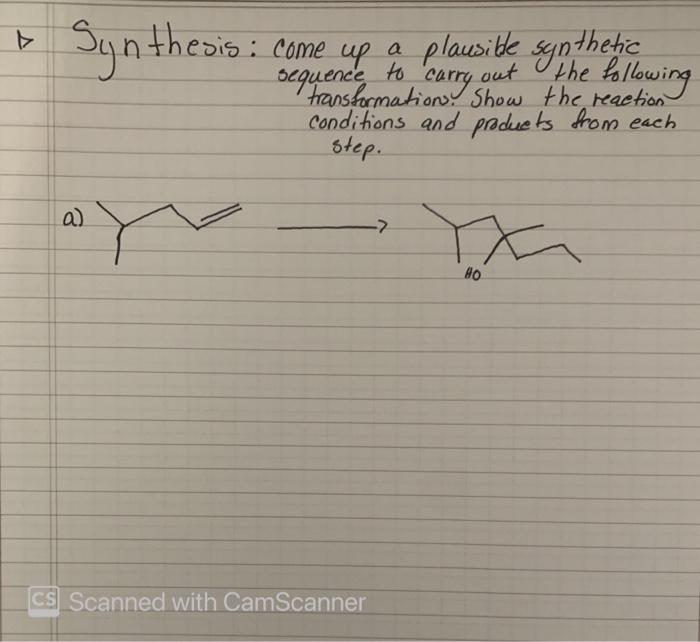 Synthesis: come up a plausible synthetic
sequence to carry out the following
transformations. Show the reaction
conditions and products from each
step.
a)
HO
CS Scanned with CamScanner